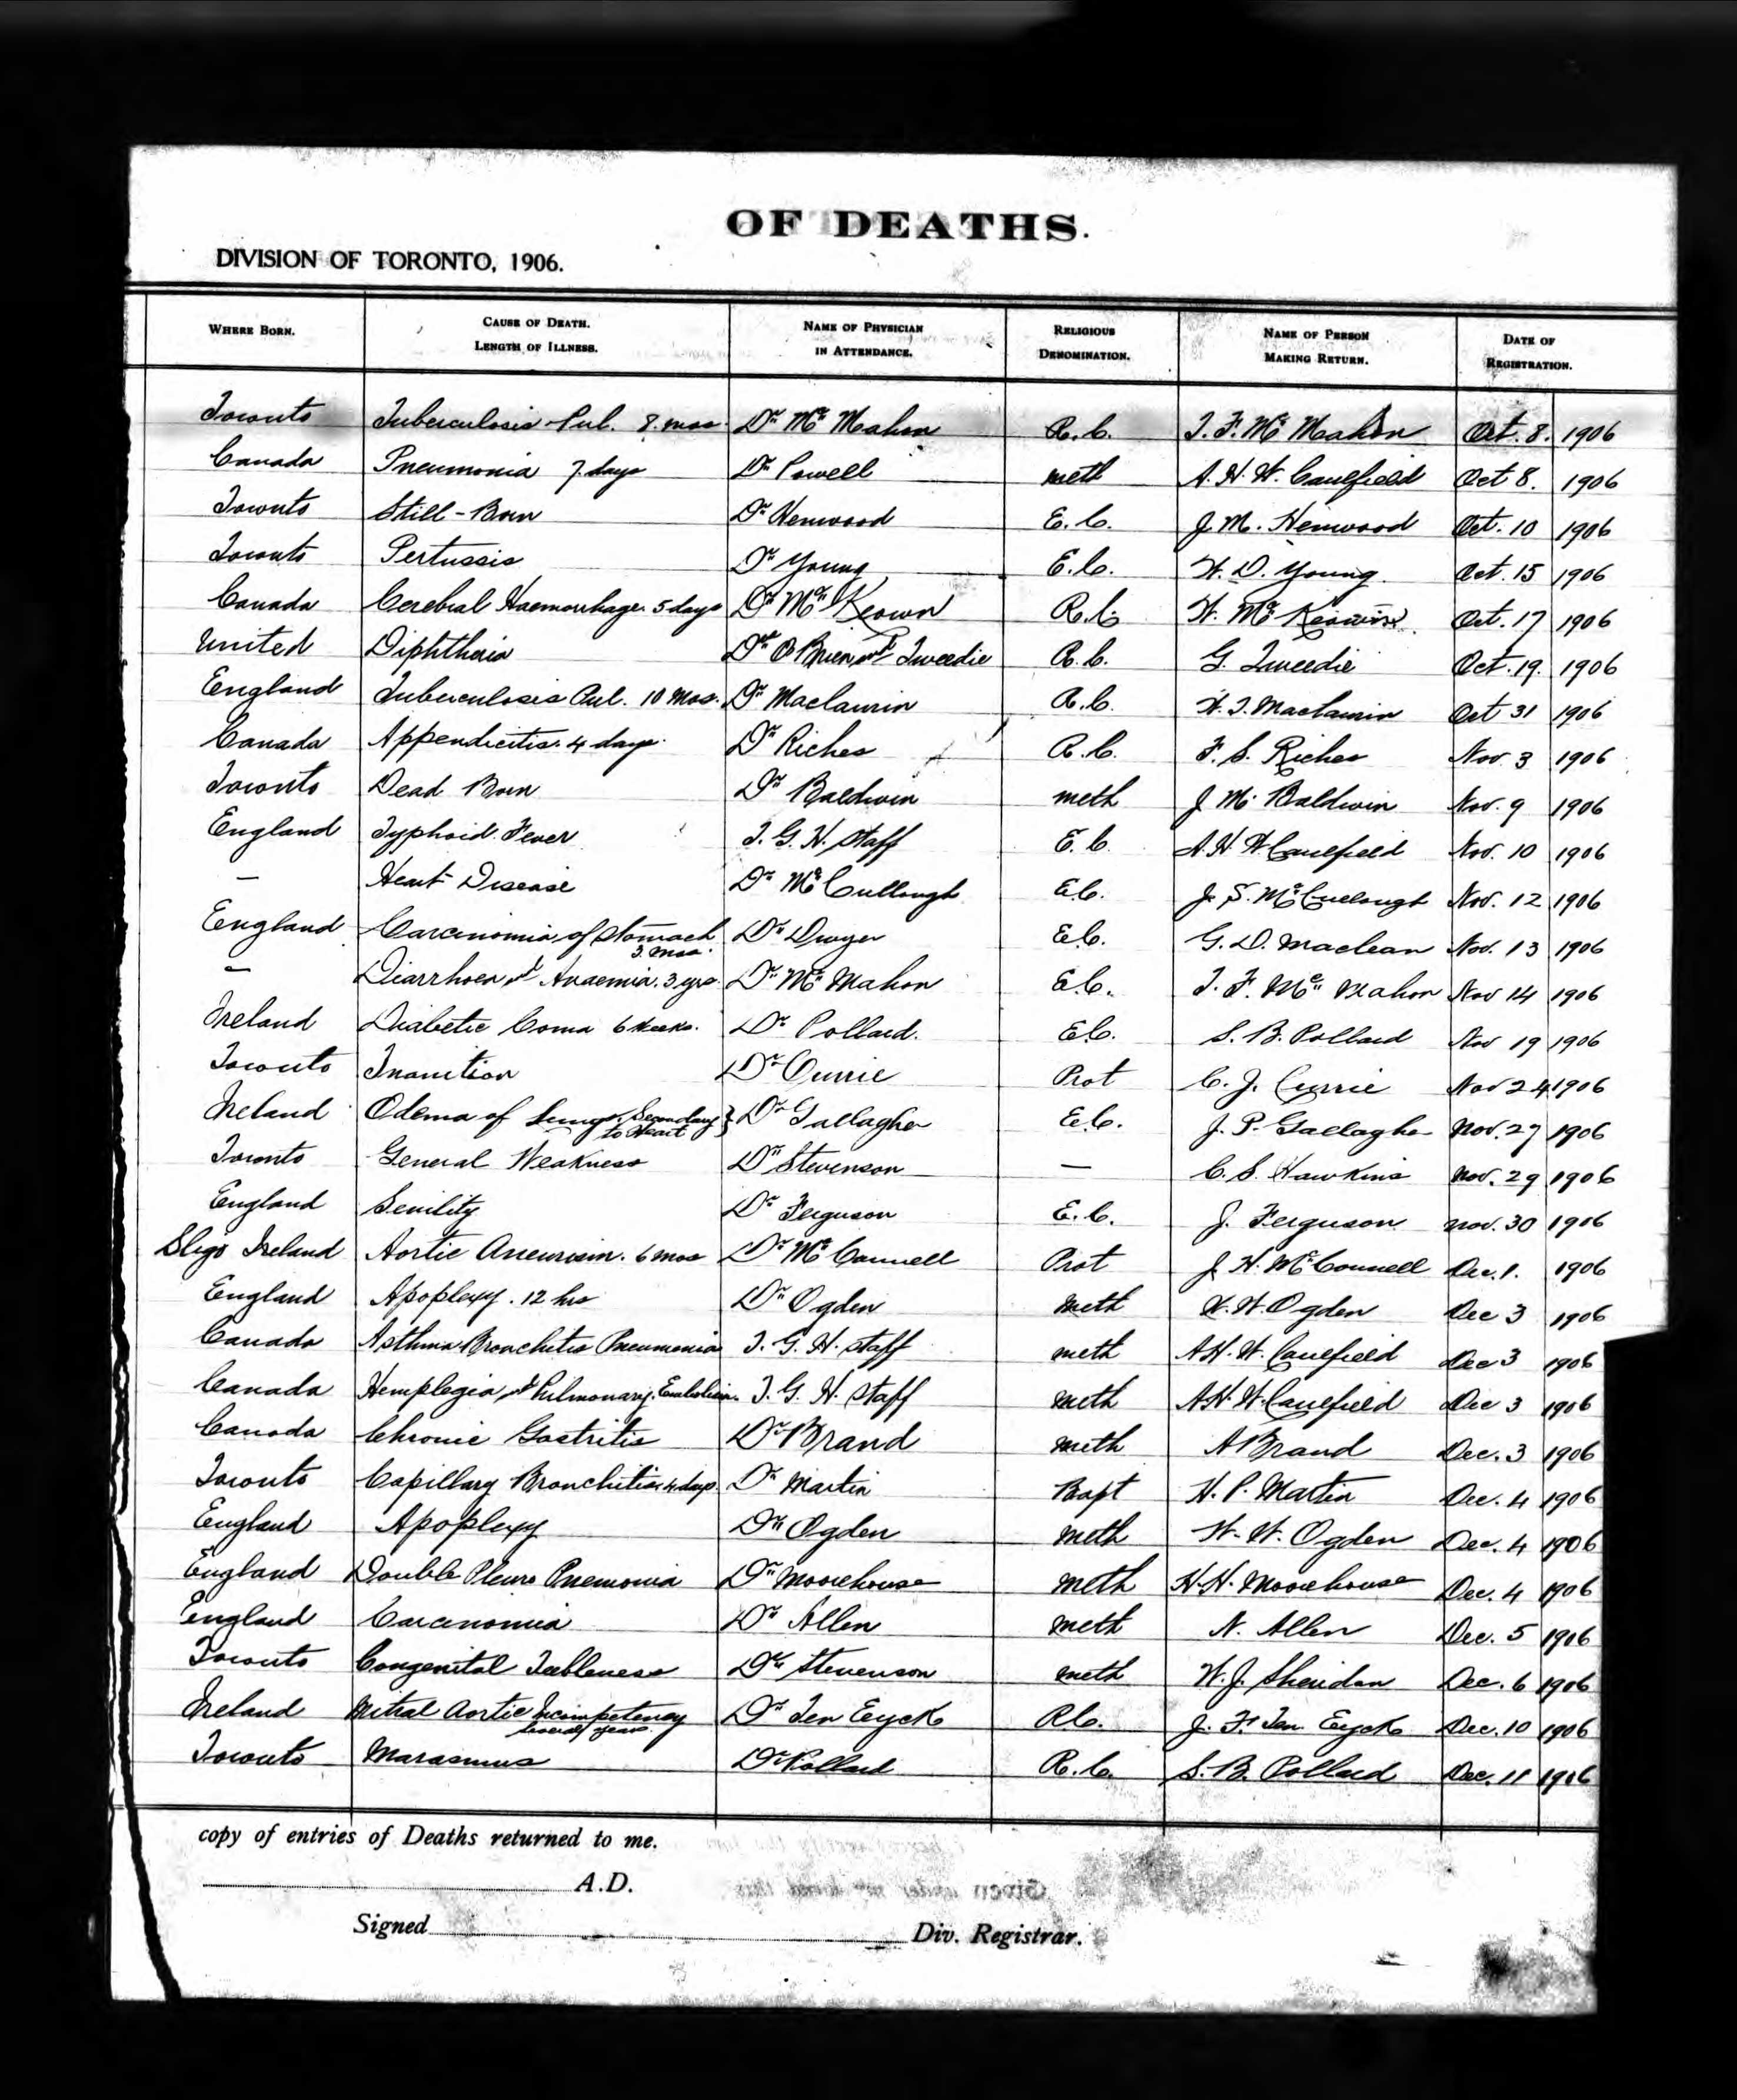 OF DEATHS.
DIVISION OF TORONTO, 1906.
WHERE BORN. CAUSE OF DEATH. LENGTH OF ILLNESS. NAME OF PHYSICIAN IN ATTENDANCE. RELIGIOUS DENOMINATION. NAME OF PERSON MAKING RETURN. DATE OF REGISTRATION.
Toronto Tuberculosis Pul. 8 mos. Dr McMahon R.C. T. F. McMahon Oct. 8. 1906
Canada Pneumonia 7 days Dr Powell meth A. H. W. Caulfield Oct 8. 1906
Toronto Still-Born Dr Henwood E.C. J. M. Henwood Oct. 10 1906
Toronto Pertussis Dr Young E.C. W. D. Young Oct. 15 1906
Canada Cerebral Haemorrhage 5 days Dr McKeown R.C. W. McKeown Oct. 17 1906
United Diphtheria Dr O'Brien & Tweedie R.C. G. Tweedie Oct. 19. 1906
England Tuberculosis Pul. 10 Mos. Dr Maclaurin R.C. W. T. Maclaurin Oct 31 1906
Canada Appendicitis. 4 days. Dr Riches R.C. F. S. Riches Nov. 3 1906
Toronto Dead Born Dr Baldwin meth J. M. Baldwin Nov. 9 1906
England Typhoid Fever T. G. H. Staff E.C. A. H. W. Caulfield Nov. 10 1906
— Heart Disease Dr McCullough E.C. J. S. McCullough Nov. 12 1906
England Carcinomia of Stomach mos. Dr Dwyer E.C. G. D. Maclean Nov. 13 1906
— Diarrhoea & Anaemia. 3 yrs. Dr McMahon E.C. T. F. McMahon Nov 14 1906
Ireland Diabetic Coma 6 Weeks. Dr Pollard. E.C. S. B. Pollard Nov 19 1906
Toronto Inanition Dr Currie Prot C. J. Currie Nov 24 1906
Ireland Odema of Lungs Secondary to Heart } Dr Gallagher E.C. J. P. Gallagher Nov. 27 1906
Toronto General Weakness Dr Stevenson — C. S. Hawkins Nov. 29 1906
England Senility Dr Ferguson E.C. J. Ferguson nov. 30 1906
Sligo Ireland Aortic Aneurism. 6 mos Dr McConnell Prot J. H. McConnell Dec. 1. 1906
England Apoplexy. 12 hrs Dr Ogden meth W. W. Ogden Dec 3 1906
Canada Asthma Bronchitis Pneumonia T. G. H. Staff meth A. H. W. Caulfield Dec 3 1906
Canada Hemplegia & Pulmonary Embolism. T. G. H. Staff meth A. H. W. Caulfield Dec 3 1906
Canada Chronic Gastritis Dr Brand meth A Brand Dec. 3 1906
Toronto Capillary Bronchitis 4 days. Dr Martin Bapt H. P. Martin Dec. 4 1906
England Apoplexy Dr Ogden meth W. W. Ogden Dec. 4 1906
England Double Pleuro Pnemonia Dr Moorehouse meth H. H. Moorehouse Dec. 4 1906
England Carcinomia Dr Allen meth N. Allen Dec. 5 1906
Toronto Congenital Feebleness Dr Stevenson meth W. J. Sheridan Dec. 6 1906
Ireland Mitral Aortic Incompetency Several years. Dr Ten Eyck R.C. J. F. Ten Eyck Dec. 10 1906
Toronto Marasmus Dr Pollard R.C. S. B. Pollard Dec. 11 1906
copy of entries of Deaths returned to me.
A.D.
Signed Div. Registrar.